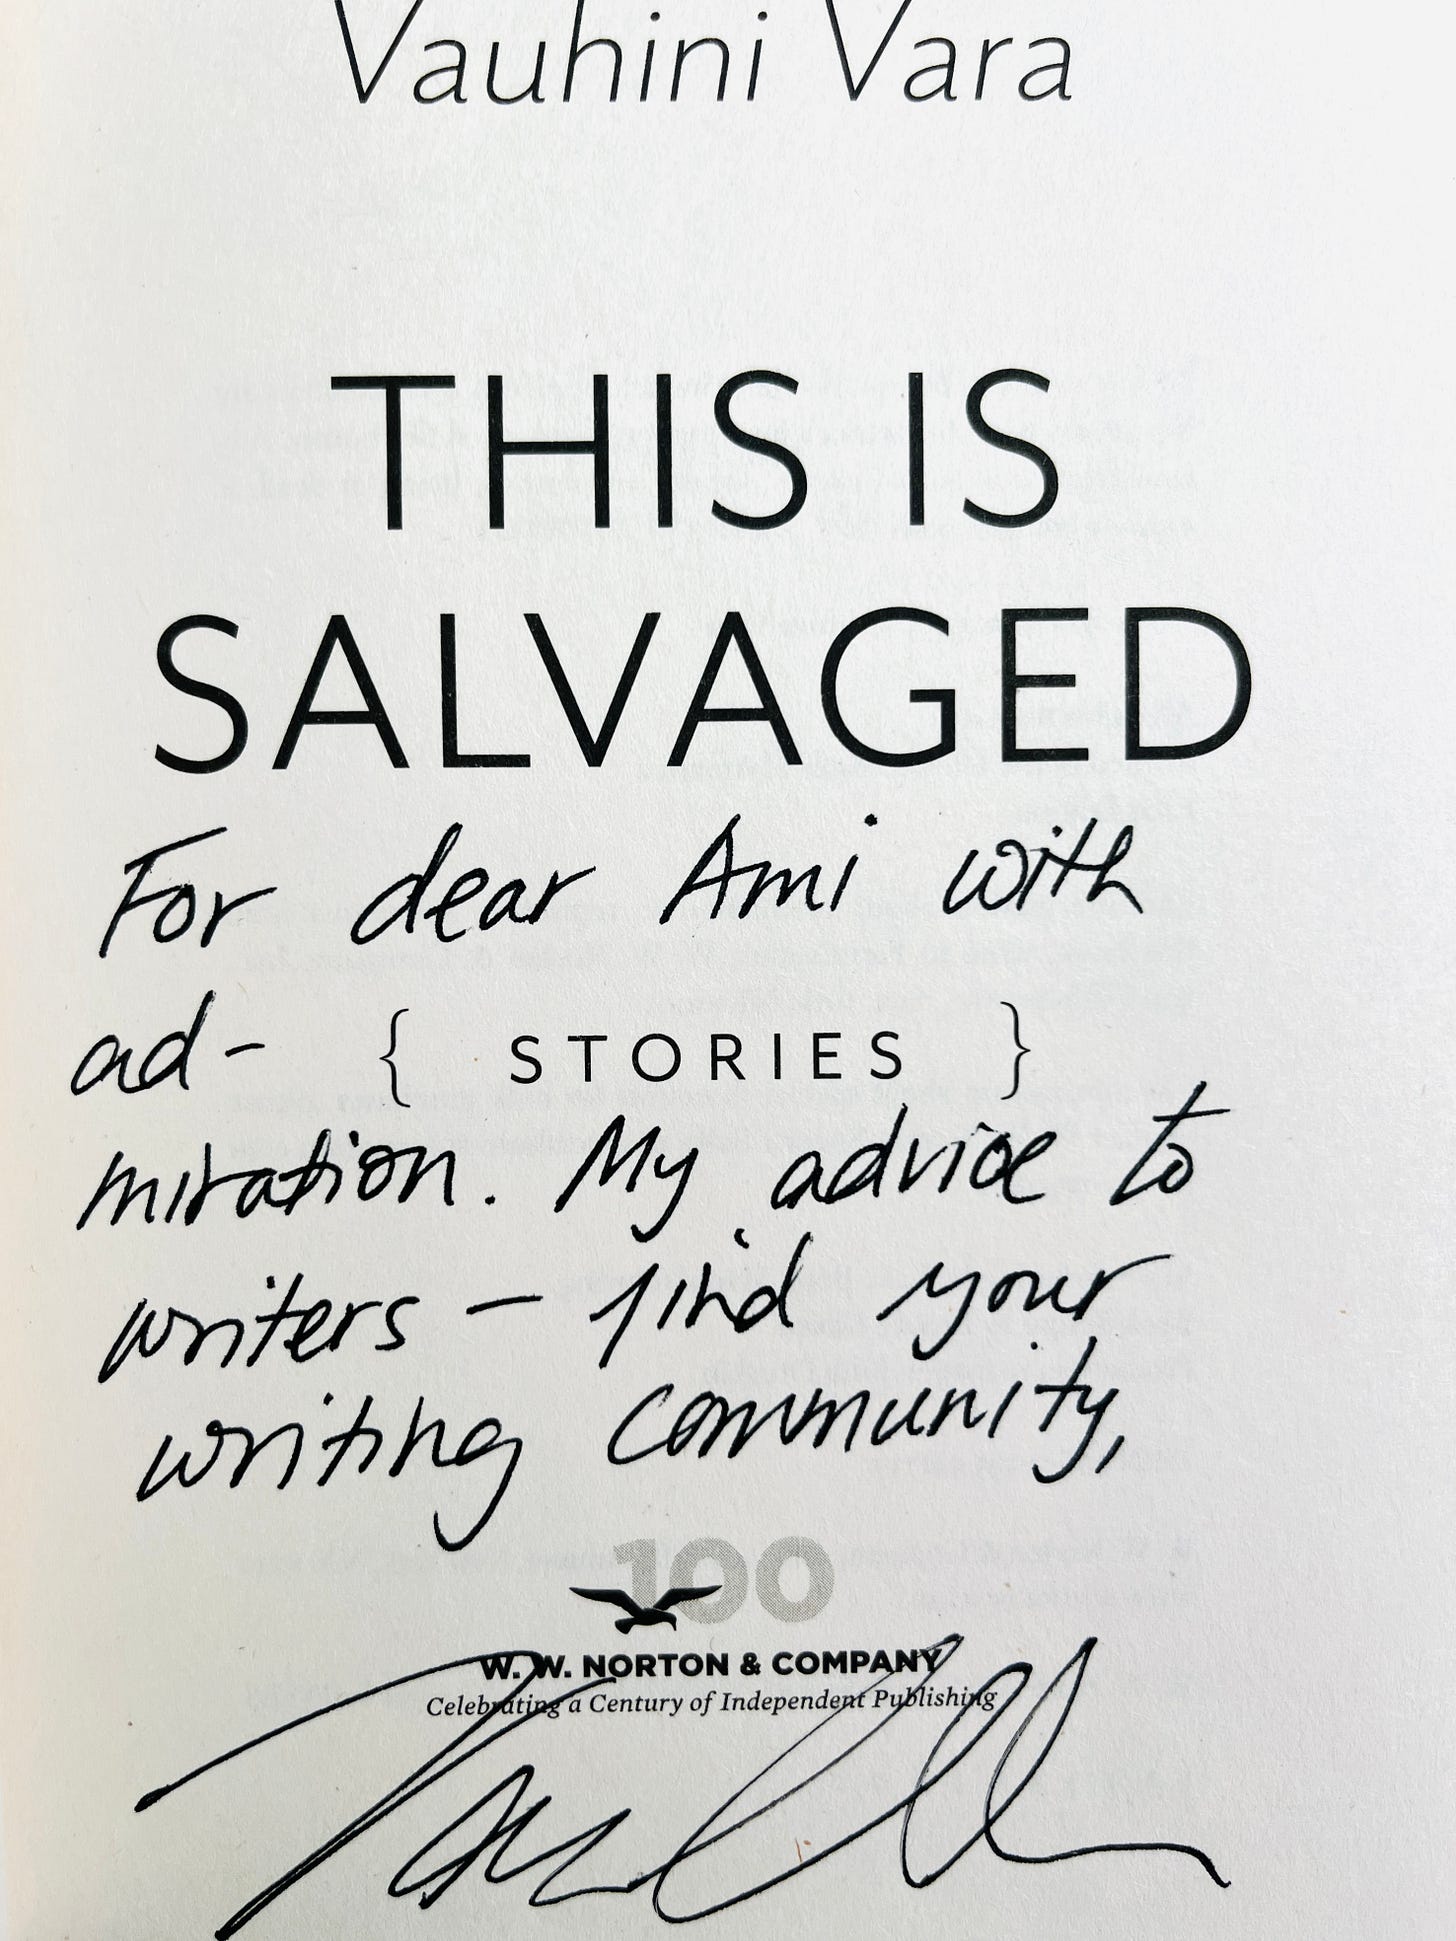 Vauhini Vara
THIS IS
SALVAGED
For dear Ami with
ad-
{ STORIES }
miration. My advice to
writers – find your
writing community,
100
W. W. NORTON & COMPANY
Celebrating a Century of Independent Publishing